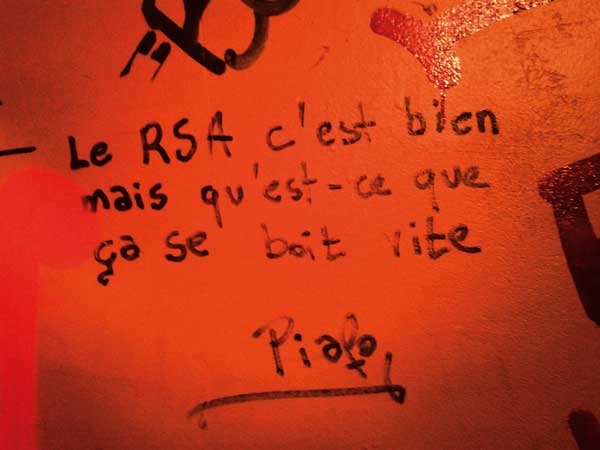 - Le RSA c'est bien
mais qu'est-ce que
ça se boit vite